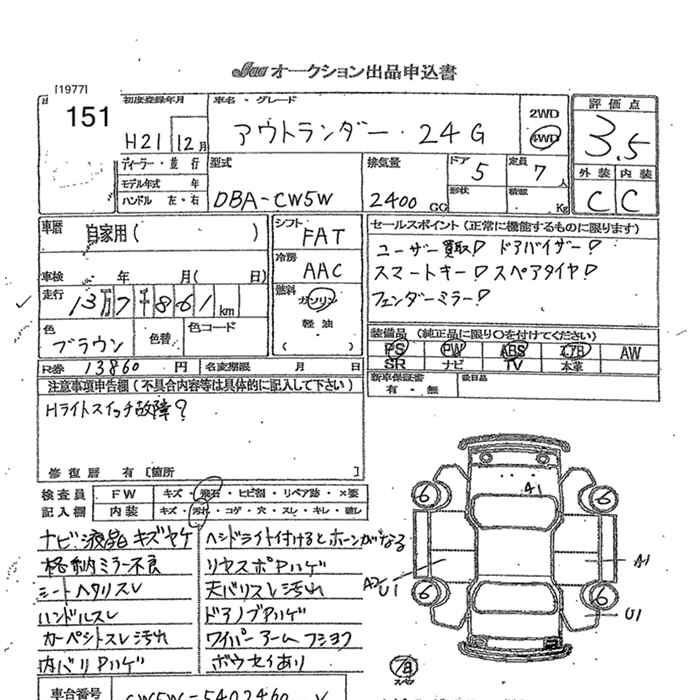 Jaa オークション出品申込書
[1977]
151
初度登録年月
H21 12月
車名・グレード
アウトランダー・24G
2WD
4WD
評価点
3.5
外装 内装
C C
ディーラー・並行
モデル年式 年
ハンドル 左・右
型式
DBA-CW5W
排気量
2400 CC
ドア 5
形状
定員 7 人
積載 Kg
車歴 自家用( )
シフト FAT
セールスポイント (正常に機能するものに限ります)
ユーザー買取! ドアバイザー!
スマートキー! スペアタイヤ!
フェンダーミラー!
車検 年 月( 日)
冷房 AAC
走行 13万7千861km
燃料 ガソリン
軽油
( )
色 ブラウン
色替
色コード
装備品 (純正品に限り○を付けてください)
PS PW ABS エアB AW
SR ナビ TV 本革
R券 13860 円
名変期限 月 日
新車保証書
有・無
後日品
注意事項申告欄 (不具合内容等は具体的に記入して下さい)
Hライトスイッチ故障?
修復歴 有 [箇所 ]
検査員 FW キズ・飛石・ヒビ割・リペア跡・X要
記入欄 内装 キズ・汚れ・コゲ・穴・スレ・キレ・
ナビ液晶キズヤケ
ヘッドライト付けるとホーンがなる
格納ミラー不良
リヤスポハゲ
シートヘタリスレ
天バリスレ汚れ
ハンドルスレ
ドアノブハゲ
カーペットスレ汚れ
ワイパーアームフショク
内バリハゲ
ボウセイあり
車台番号 CW5W-5402460
A1
6 6
A2 U1
A1
6 6
U1